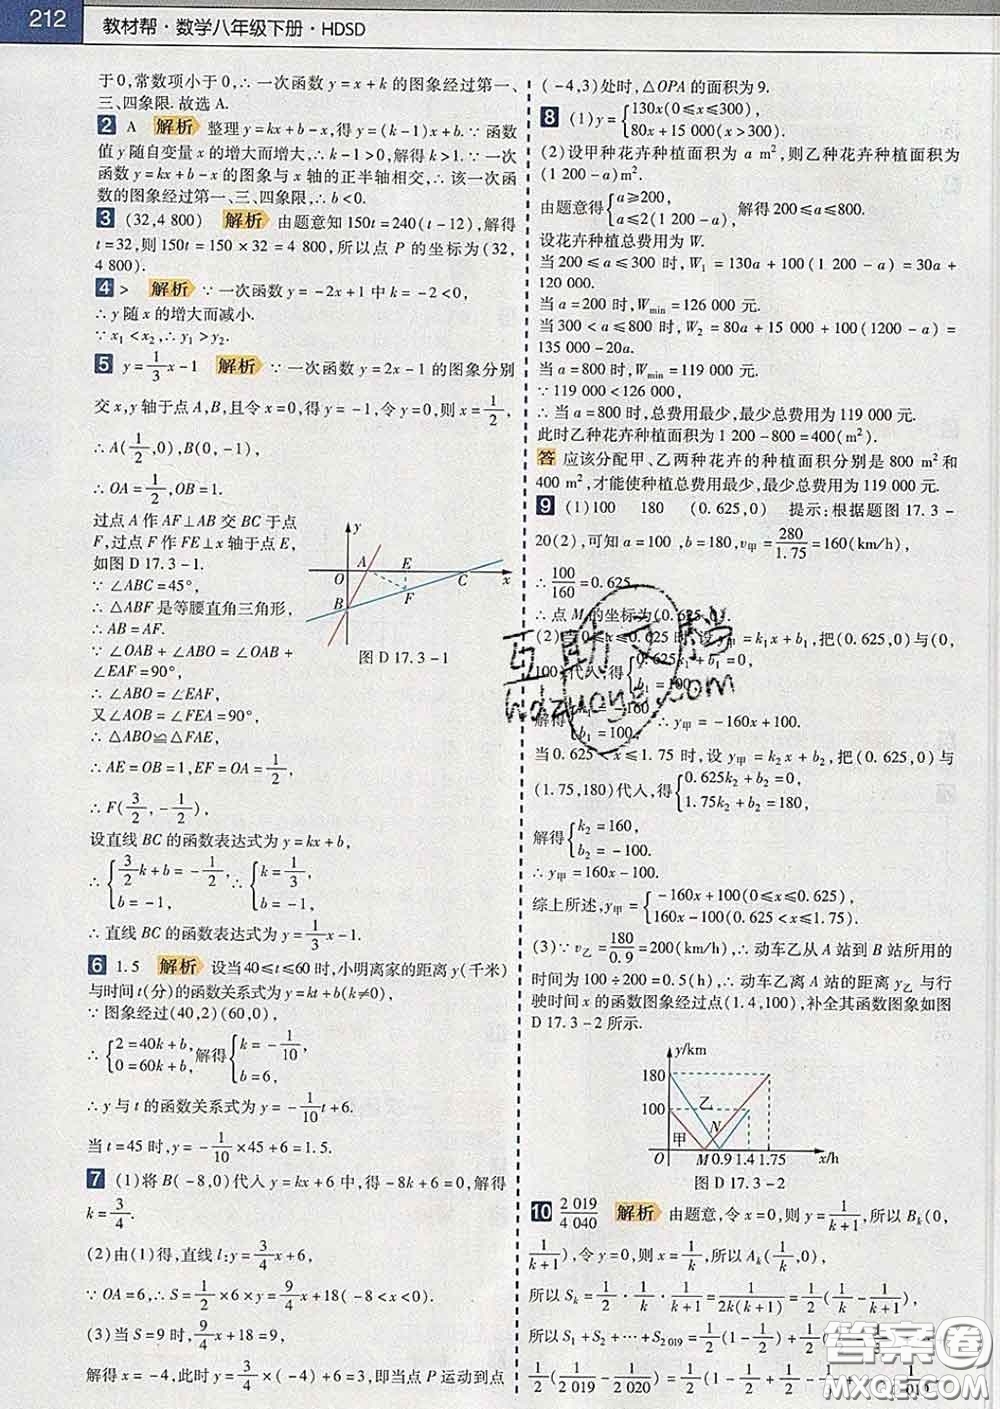 212 教材帮·数学八年级下册·HDSD
于0,常数项小于0,∴一次函数y=x+k的图象经过第一、
三、四象限.故选A.
2 A 解析 整理y=kx+b-x,得y=(k-1)x+b.∵函数
值y随自变量x的增大而增大,∴k-1>0,解得k>1.∵一次
函数y=kx+b-x的图象与x轴的正半轴相交,∴该一次函
数的图象经过第一、三、四象限,∴b<0.
3 (32,4 800) 解析 由题意知150t=240(t-12),解得
t=32,则150t=150×32=4 800,所以点P的坐标为(32,
4 800).
4 > 解析 ∵一次函数y=-2x+1中k=-2<0,
∴y随x的增大而减小.
∵x₁<x₂,∴y₁>y₂.
5 y=1/3x-1 解析 ∵一次函数y=2x-1的图象分别
交x,y轴于点A,B,且令x=0,得y=-1,令y=0,则x=1/2,
∴A(1/2,0),B(0,-1),
∴OA=1/2,OB=1.
过点A作AF⊥AB交BC于点
F,过点F作FE⊥x轴于点E,
如图D 17.3-1.
∵∠ABC=45°,
∴△ABF是等腰直角三角形,
∴AB=AF.
∵∠OAB+∠ABO=∠OAB+
∠EAF=90°,
∴∠ABO=∠EAF,
又∠AOB=∠FEA=90°,
∴△AOB≌△FAE,
y
A E
O C x
B F
图D 17.3-1
∴AE=OB=1,EF=OA=1/2,
∴F(3/2,-1/2),
设直线BC的函数表达式为y=kx+b,
∴{3/2k+b=-1/2, b=-1, ∴{k=1/3, b=-1,
∴直线BC的函数表达式为y=1/3x-1.
6 1.5 解析 设当40≤t≤60时,小明离家的距离y(千米)
与时间t(分)的函数关系式为y=kt+b(k≠0),
∵图象经过(40,2)(60,0),
∴{2=40k+b, 0=60k+b, 解得{k=-1/10, b=6,
∴y与t的函数关系式为y=-1/10t+6.
当t=45时,y=-1/10×45+6=1.5.
7 (1)将B(-8,0)代入y=kx+6中,得-8k+6=0,解得
k=3/4.
(2)由(1)得,直线l:y=3/4x+6,
∵OA=6,∴S=1/2×6×y=9/4x+18(-8<x<0).
(3)当S=9时,9/4x+18=9,
解得x=-4,此时y=3/4×(-4)+6=3,即当点P运动到点
(-4,3)处时,△OPA的面积为9.
8 (1)y={130x(0≤x≤300), 80x+15 000(x>300).
(2)设甲种花卉种植面积为a m²,则乙种花卉种植面积为
(1 200-a)m².
由题意得{a≥200, a≤2(1 200-a), 解得200≤a≤800.
设花卉种植总费用为W.
当200≤a≤300时,W₁=130a+100(1 200-a)=30a+
120 000.
当a=200时,Wmin=126 000元.
当300<a≤800时,W₂=80a+15 000+100(1200-a)=
135 000-20a.
当a=800时,Wmin=119 000元.
∵119 000<126 000,
∴当a=800时,总费用最少,最少总费用为119 000元.
此时乙种花卉种植面积为1 200-800=400(m²).
答 应该分配甲、乙两种花卉的种植面积分别是800 m²和
400 m²,才能使种植总费用最少,最少总费用为119 000元.
9 (1)100 180 (0.625,0) 提示:根据题图17.3-
20(2),可知a=100,b=180,v甲=280/1.75=160(km/h),
∴100/160=0.625,
∴点M的坐标为(0.625,0).
(2)当0≤x≤0.625时,设y甲=k₁x+b₁,把(0.625,0)与(0,
100)代入,得{0.625k₁+b₁=0, b₁=100,
解得{k₁=-160, b₁=100, ∴y甲=-160x+100.
当0.625<x≤1.75时,设y甲=k₂x+b₂,把(0.625,0)与
(1.75,180)代入,得{0.625k₂+b₂=0, 1.75k₂+b₂=180,
解得{k₂=160, b₂=-100.
∴y甲=160x-100.
综上所述,y甲={-160x+100(0≤x≤0.625), 160x-100(0.625<x≤1.75).
(3)∵v乙=180/0.9=200(km/h),∴动车乙从A站到B站所用的
时间为100÷200=0.5(h),∴动车乙离A站的距离y乙与行
驶时间x的函数图象经过点(1.4,100),补全其函数图象如图
D 17.3-2所示.
y/km
180
100
乙
甲 N
O M 0.9 1.4 1.75 x/h
图D 17.3-2
10 2 019/4 040 解析 由题意,令x=0,则y=1/(k+1),所以Bₖ(0,
1/(k+1)),令y=0,则x=1/k,所以Aₖ(1/k,0),
所以Sₖ=1/2·1/k·1/(k+1)=1/(2k(k+1))=1/2(1/k-1/(k+1)),
所以S₁+S₂+…+S₂ ₀₁₉=1/2(1-1/2)+1/2(
1/2(1/2 019-1/2 020)=1/2(1-1/2+ 1/2 019
互助文档
hdzuoye.com
答案圈
MXQE.COM